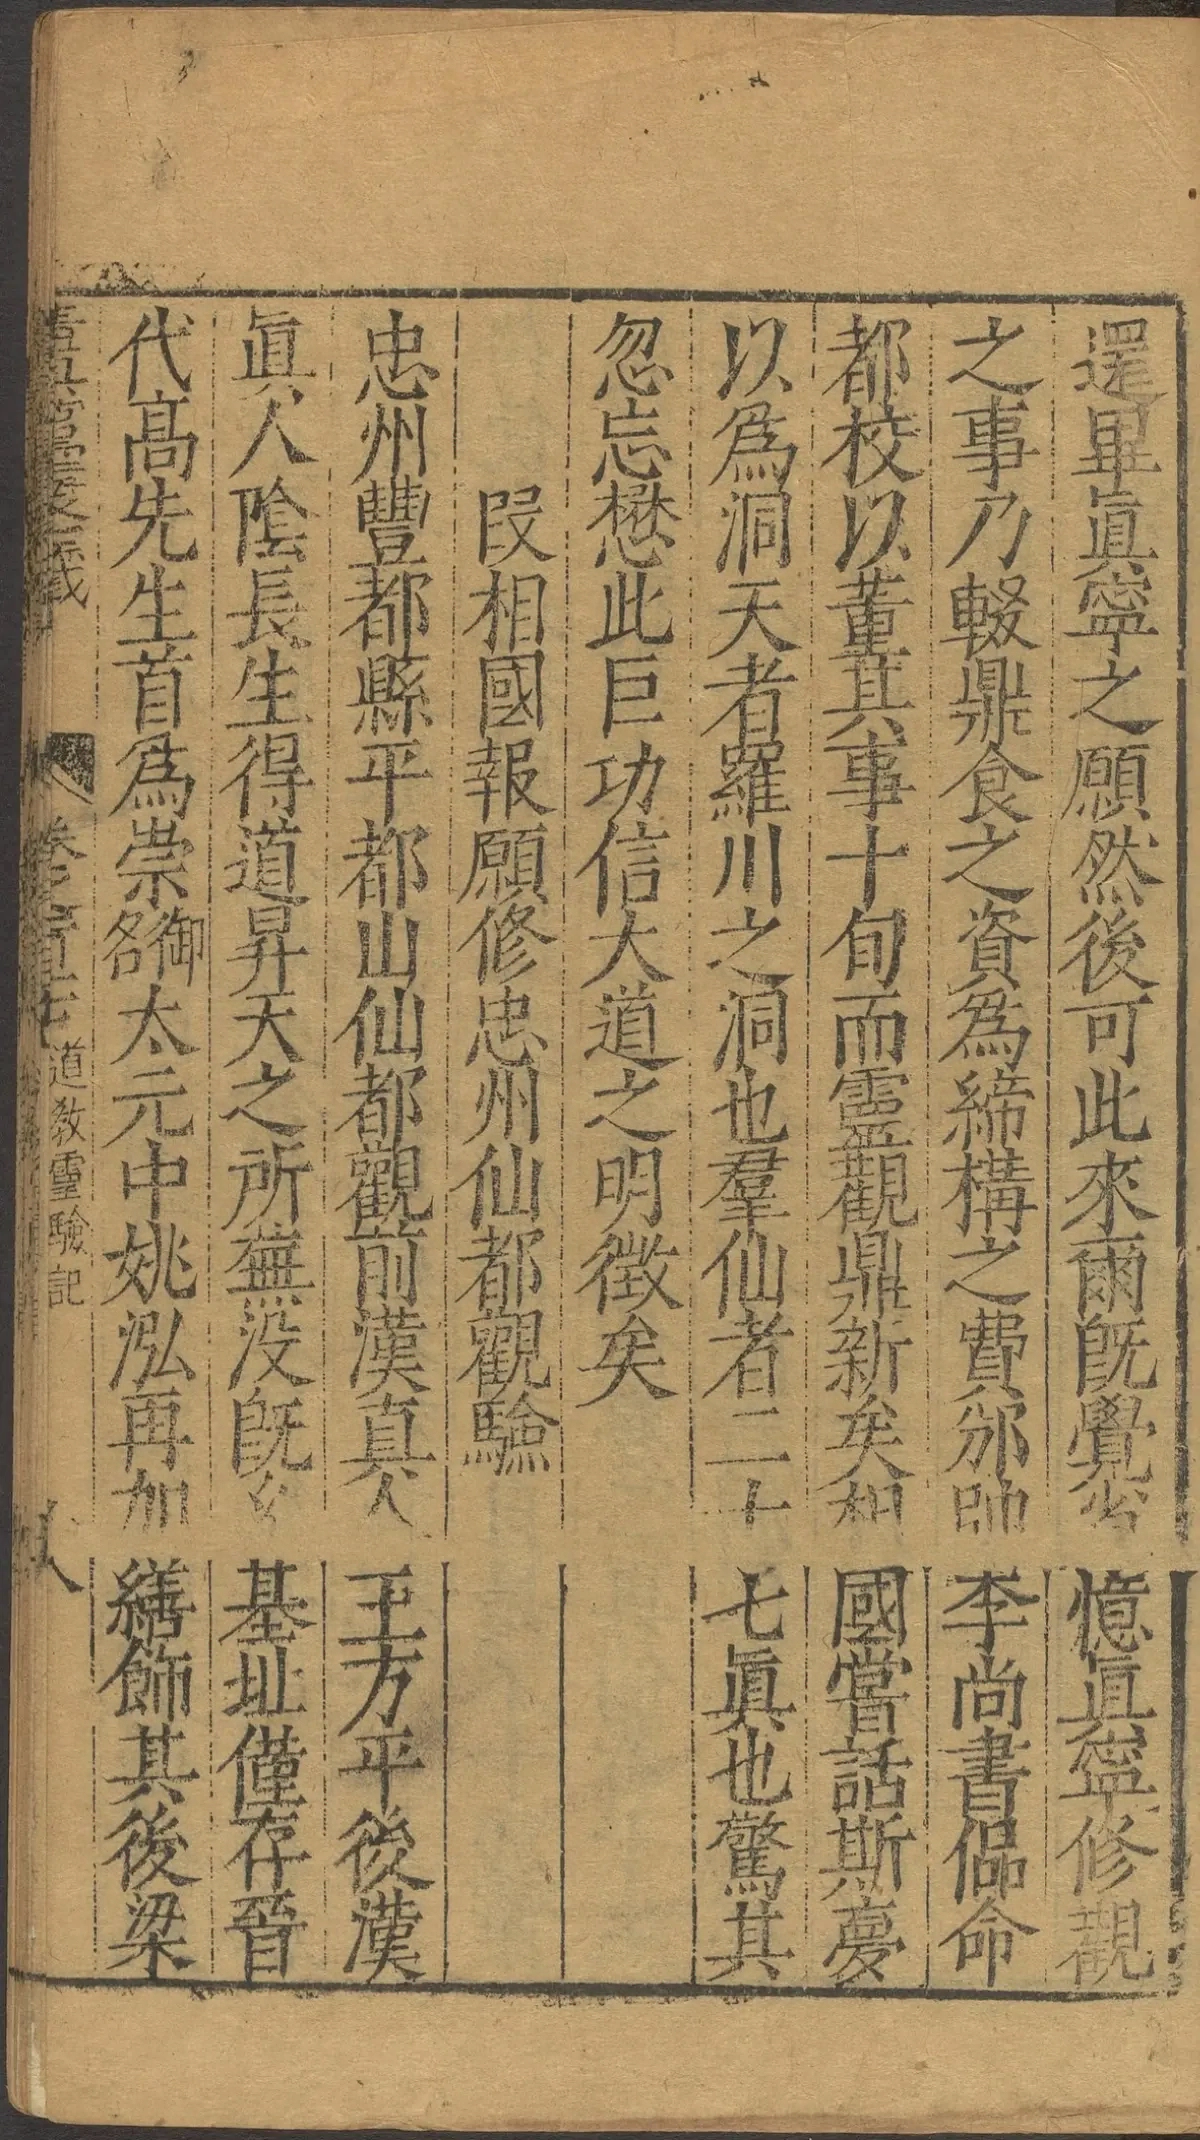 還畢眞寧之願然後可此來爾旣覺省憶眞寧修觀
之事乃輟鼎食之資爲締構之費邠帥李尚書侃命
都校以董其事十旬而靈觀鼎新矣相國嘗話斯夢
以爲洞天者羅川之洞也羣仙者二十七眞也驚其
忽忘懋此巨功信大道之明徵矣
段相國報願修忠州仙都觀驗
忠州豐都縣平都山仙都觀前漢真人王方平後漢
眞人陰長生得道昇天之所蕪没旣久基址僅存晉
代高先生首爲崇御名太元中姚泓再加繕飾其後梁
雲笈七籤 卷之一百十七 道教靈驗記 八